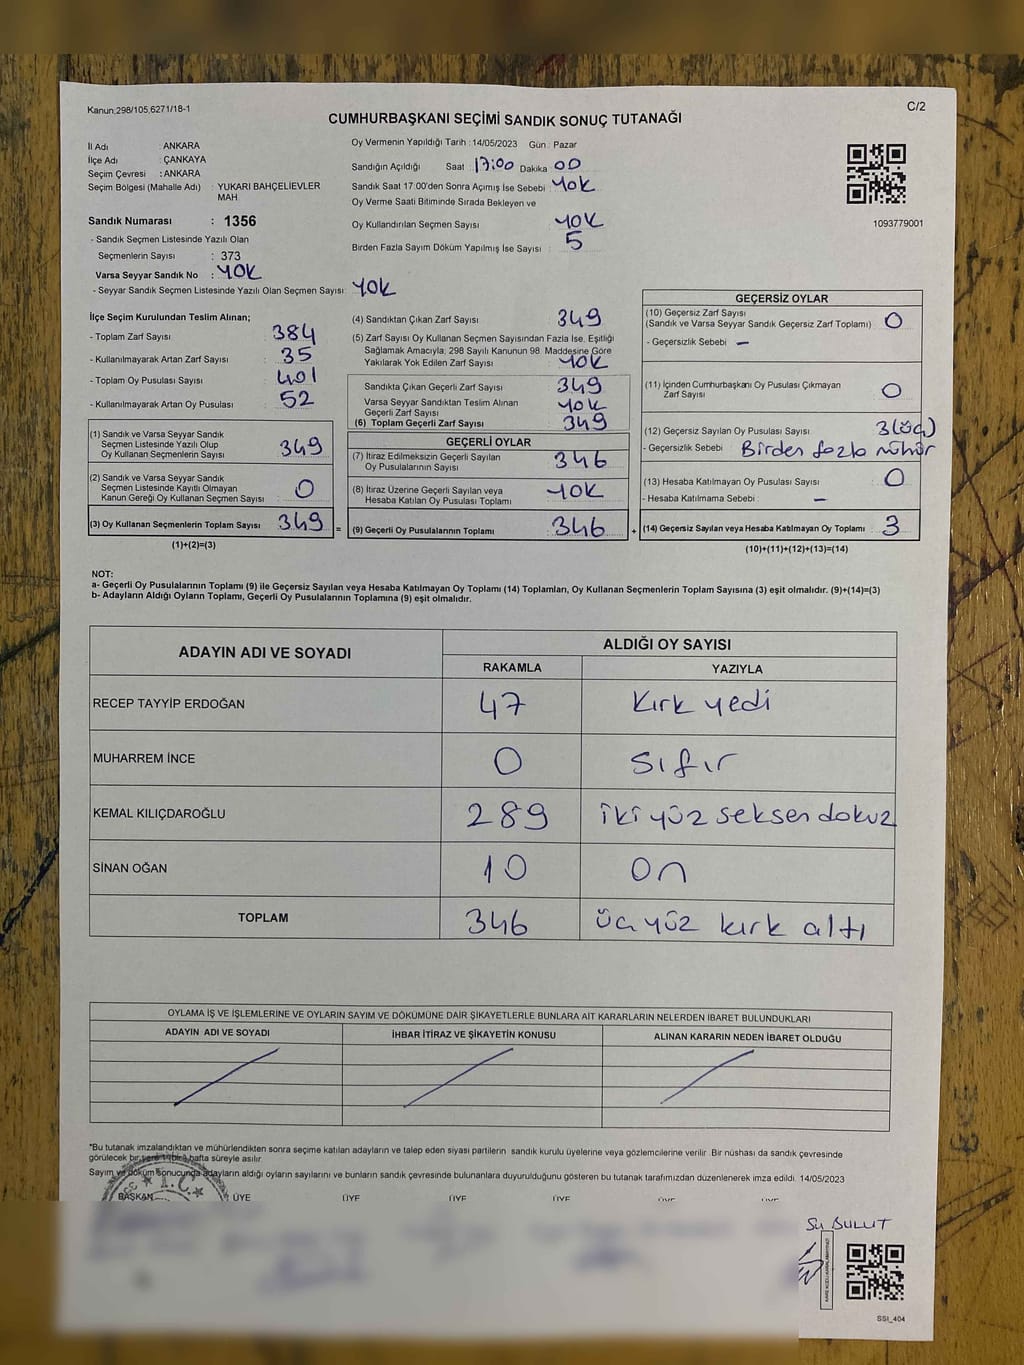 Kanun:298/105,6271/18-1
C/2
CUMHURBAŞKANI SEÇİMİ SANDIK SONUÇ TUTANAĞI
İl Adı : ANKARA
İlçe Adı : ÇANKAYA
Seçim Çevresi : ANKARA
Seçim Bölgesi (Mahalle Adı) : YUKARI BAHÇELİEVLER
MAH.
Sandık Numarası : 1356
- Sandık Seçmen Listesinde Yazılı Olan
Seçmenlerin Sayısı : 373
Varsa Seyyar Sandık No : YOK
- Seyyar Sandık Seçmen Listesinde Yazılı Olan Seçmen Sayısı: YOK
Oy Vermenin Yapıldığı Tarih : 14/05/2023 Gün : Pazar
Sandığın Açıldığı Saat 17:00 Dakika 00
Sandık Saat 17:00'den Sonra Açımış İse Sebebi YOK
Oy Verme Saati Bitiminde Sırada Bekleyen ve
Oy Kullandırılan Seçmen Sayısı YOK
Birden Fazla Sayım Döküm Yapılmış İse Sayısı 5
1093779001
İlçe Seçim Kurulundan Teslim Alınan;
- Toplam Zarf Sayısı : 384
- Kullanılmayarak Artan Zarf Sayısı : 35
- Toplam Oy Pusulası Sayısı : 401
- Kullanılmayarak Artan Oy Pusulası : 52
(1) Sandık ve Varsa Seyyar Sandık
Seçmen Listesinde Yazılı Olup
Oy Kullanan Seçmenlerin Sayısı : 349
(2) Sandık ve Varsa Seyyar Sandık
Seçmen Listesinde Kayıtlı Olmayan
Kanun Gereği Oy Kullanan Seçmen Sayısı : 0
(3) Oy Kullanan Seçmenlerin Toplam Sayısı : 349 =
(1)+(2)=(3)
(4) Sandıktan Çıkan Zarf Sayısı : 349
(5) Zarf Sayısı Oy Kullanan Seçmen Sayısından Fazla İse, Eşitliği
Sağlamak Amacıyla; 298 Sayılı Kanunun 98. Maddesine Göre
Yakılarak Yok Edilen Zarf Sayısı : YOK
Sandıkta Çıkan Geçerli Zarf Sayısı : 349
Varsa Seyyar Sandıktan Teslim Alınan
Geçerli Zarf Sayısı : YOK
(6) Toplam Geçerli Zarf Sayısı : 349
GEÇERLİ OYLAR
(7) İtiraz Edilmeksizin Geçerli Sayılan
Oy Pusulalarının Sayısı : 346
(8) İtiraz Üzerine Geçerli Sayılan veya
Hesaba Katılan Oy Pusulası Toplamı : YOK
(9) Geçerli Oy Pusulalarının Toplamı : 346 +
GEÇERSİZ OYLAR
(10) Geçersiz Zarf Sayısı
(Sandık ve Varsa Seyyar Sandık Geçersiz Zarf Toplamı) : 0
- Geçersizlik Sebebi : –
(11) İçinden Cumhurbaşkanı Oy Pusulası Çıkmayan
Zarf Sayısı : 0
(12) Geçersiz Sayılan Oy Pusulası Sayısı : 3(üç)
- Geçersizlik Sebebi : Birden fazla mühür
(13) Hesaba Katılmayan Oy Pusulası Sayısı : 0
- Hesaba Katılmama Sebebi : –
(14) Geçersiz Sayılan veya Hesaba Katılmayan Oy Toplamı : 3
(10)+(11)+(12)+(13)=(14)
NOT:
a- Geçerli Oy Pusulalarının Toplamı (9) ile Geçersiz Sayılan veya Hesaba Katılmayan Oy Toplamı (14) Toplamları, Oy Kullanan Seçmenlerin Toplam Sayısına (3) eşit olmalıdır. (9)+(14)=(3)
b- Adayların Aldığı Oyların Toplamı, Geçerli Oy Pusulalarının Toplamına (9) eşit olmalıdır.
ADAYIN ADI VE SOYADI
ALDIĞI OY SAYISI
RAKAMLA YAZIYLA
RECEP TAYYİP ERDOĞAN 47 Kırk yedi
MUHARREM İNCE 0 sıfır
KEMAL KILIÇDAROĞLU 289 iki yüz seksen dokuz
SİNAN OĞAN 10 on
TOPLAM 346 üç yüz kırk altı
OYLAMA İŞ VE İŞLEMLERİNE VE OYLARIN SAYIM VE DÖKÜMÜNE DAİR ŞİKAYETLERLE BUNLARA AİT KARARLARIN NELERDEN İBARET BULUNDUKLARI
ADAYIN ADI VE SOYADI İHBAR İTİRAZ VE ŞİKAYETİN KONUSU ALINAN KARARIN NEDEN İBARET OLDUĞU
*Bu tutanak imzalandıktan ve mühürlendikten sonra seçime katılan adayların ve talep eden siyasi partilerin sandık kurulu üyelerine veya gözlemcilerine verilir. Bir nüshası da sandık çevresinde
görülecek bir yere 1 bir hafta süreyle asılır.
Sayım ve döküm sonucunda adayların aldığı oyların sayılarını ve bunların sandık çevresinde bulunanlara duyurulduğunu gösteren bu tutanak tarafımızdan düzenlenerek imza edildi. 14/05/2023
T.C.
BAŞKAN ÜYE ÜYE ÜYE ÜYE ÜYE ÜYE
Su BULUT
SSI_404